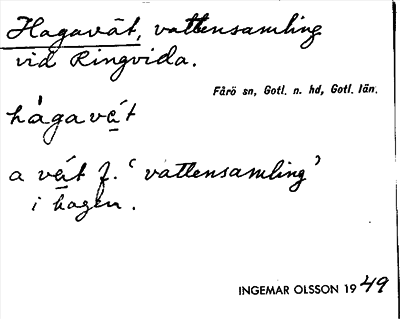 Hagavät, vattensamling
vid Ringvida.
Fårö sn, Gotl. n. hd, Gotl. län.
hágavé̱t
a vé̱t f. ‘vattensamling’
i hagen.
INGEMAR OLSSON 1949